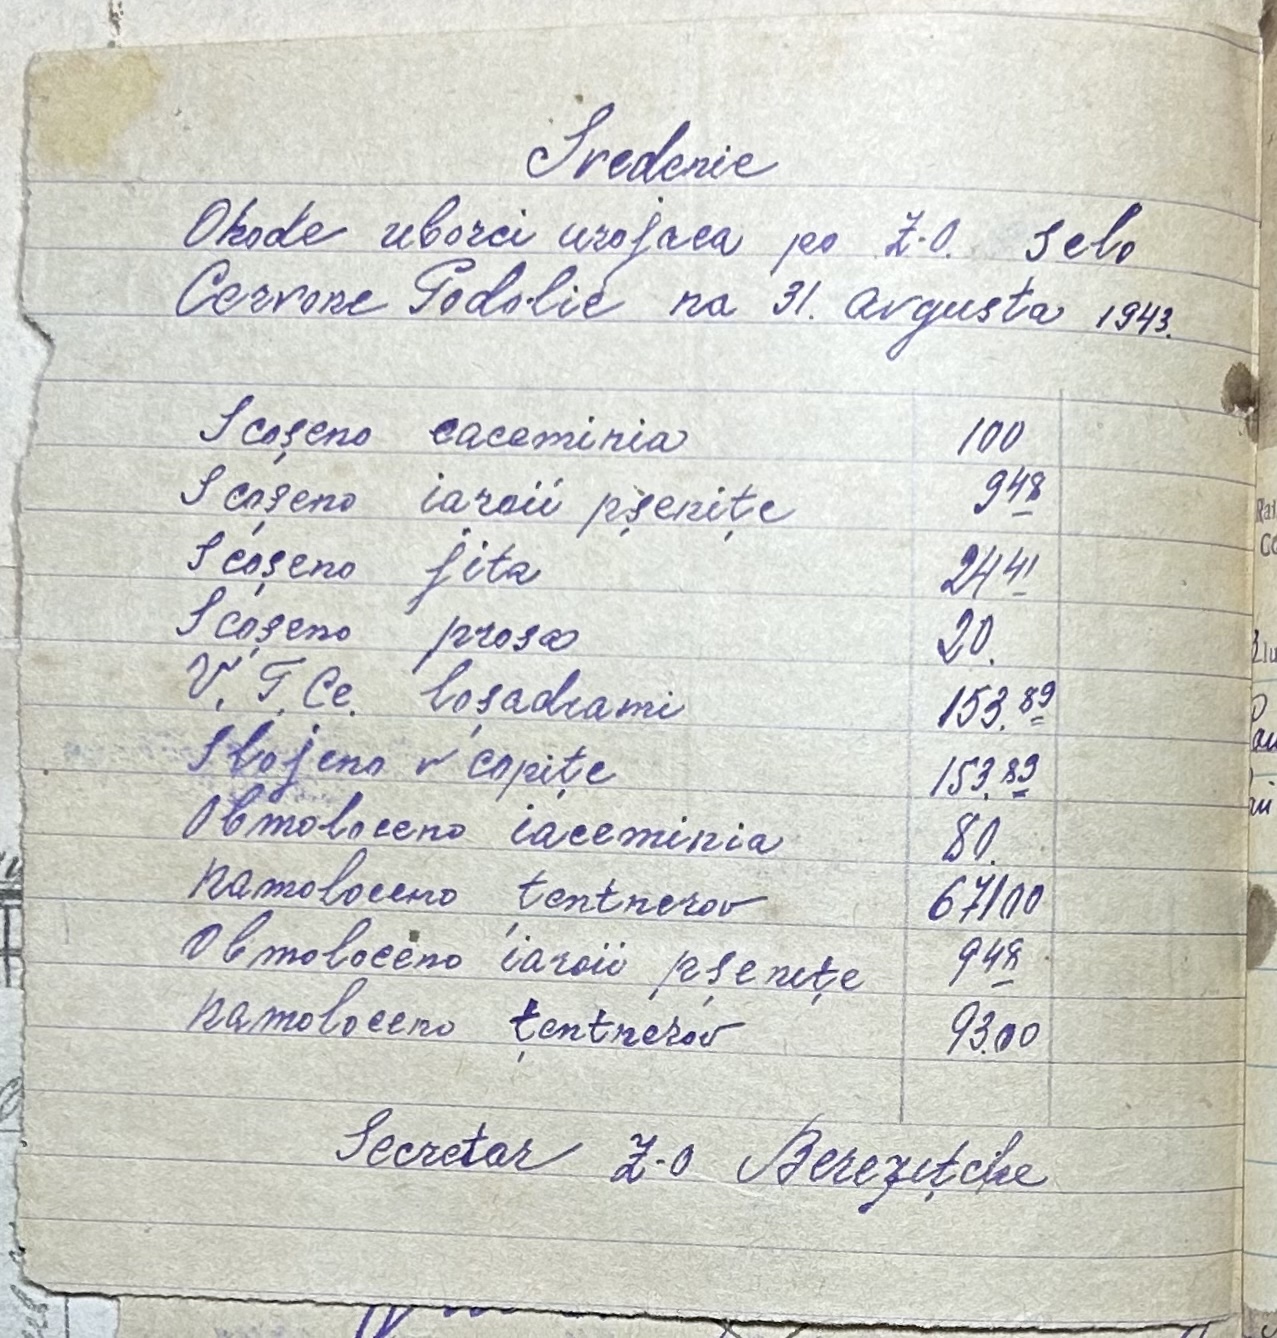 Svedenie
Ohode uborci urojaea po Z-O. selo
Cervone Podolie na 31. avgusta 1943.
Scoșeno eaceminia 100
Scoșeno iaroii pșenițe 948
Scoșeno jita 2441
Scoșeno prosa 20.
V. T. Ce. loșadiami 153.89
Slojeno v copițe 153.89
Obmoloceno iaceminia 80.
namoloceno țentnerov 67/00
Obmoloceno iaroii pșenițe 948
namoloceno țentnerov 93.00
Secretar Z-O